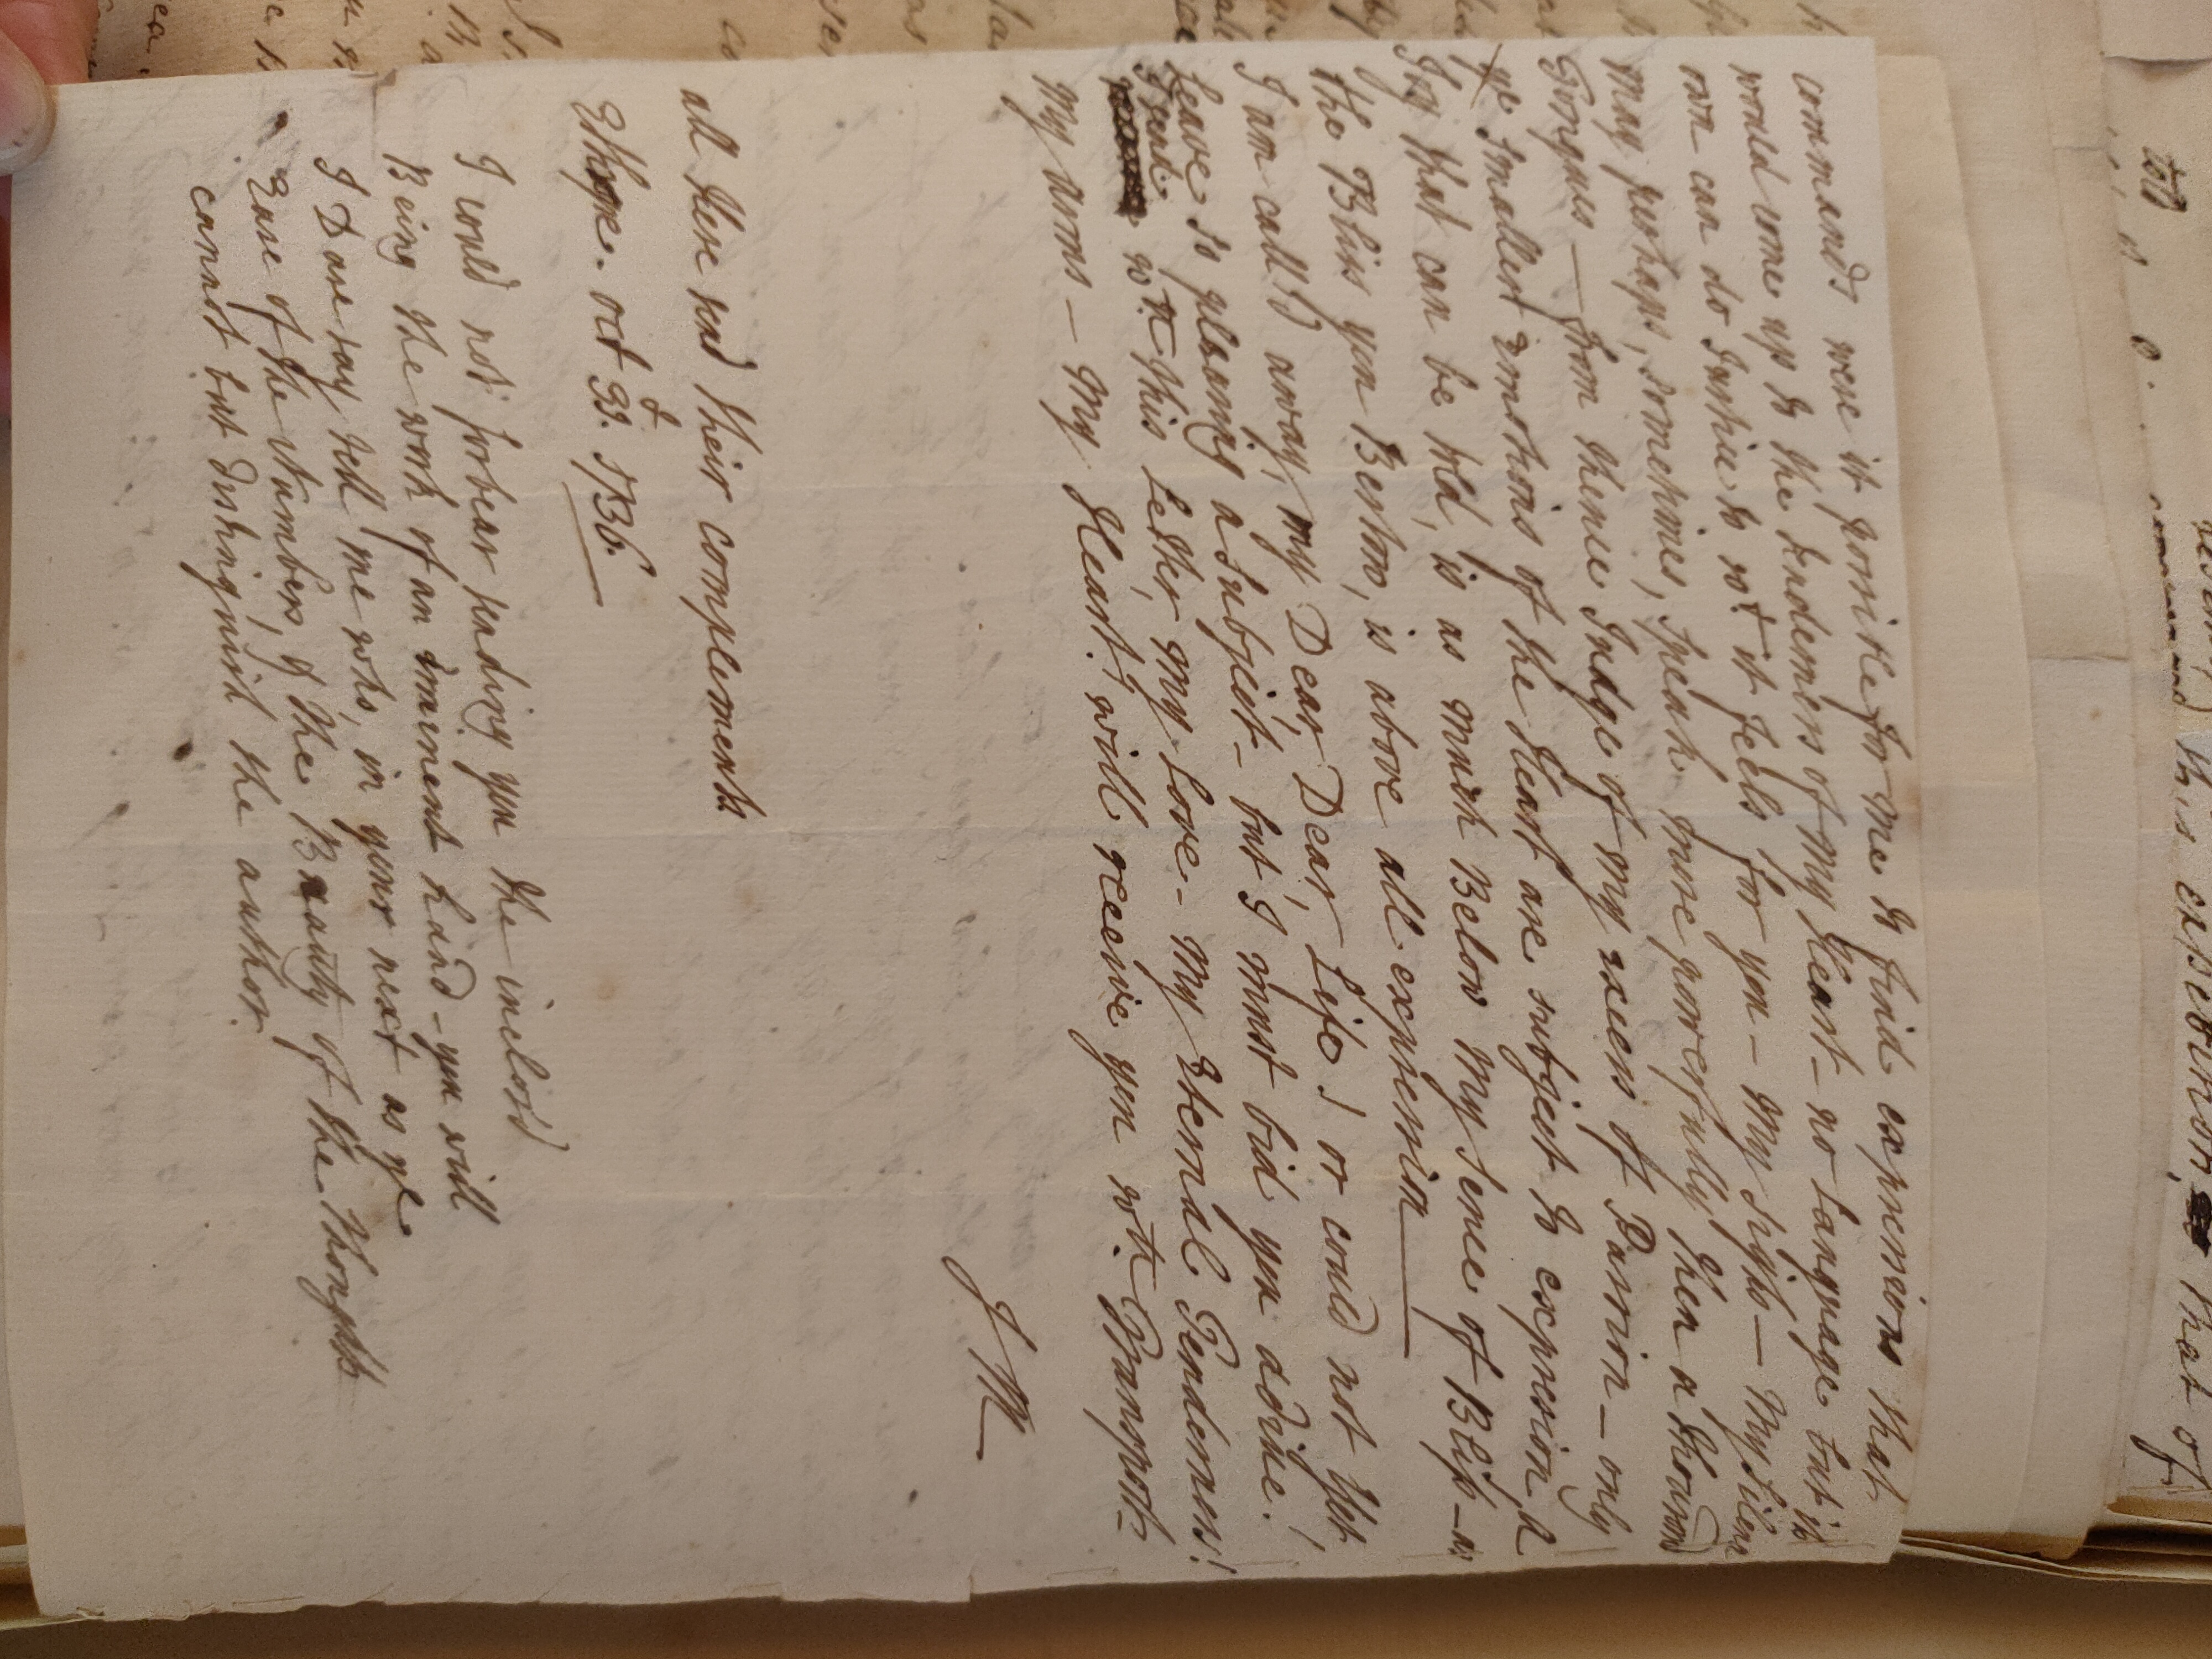 told
this expedition, that of
commands were it possible for me to find expressions that
would come up to the tenderness of my Heart - no Language but its
own can do Justice to wt. it feels for you - my sighs - my Silence
may perhaps, sometimes, speak more powerfully then a thousand
Tongues - from thence Judge of my excess of Passion - only
ye smallest Emotions of the Heart are subject to expresion, a
Joy that can be told, is as much Below my sence of Bliss - as
the Bliss you Bestow, is above all expression
I am call'd away, my Dear, Dear, Life! or could not Yet,
Leave so pleasing a subject - but I must bid you adiue!
I send
wth. this Letter, my Love - my Eternal Tenderness!
my arms - my Heart! will receive you wth. Transport-
J M
all Here send their complements.
Ethrope. Oct 31. 1736.
I could not forbear sending you the inclos'd
Being the work of an Eminent hand - you will
I Dare say tell me who, in your next as ye
Ease of the Numbers, & the Beauty of the Thoughts
cannot but distinguish the author.